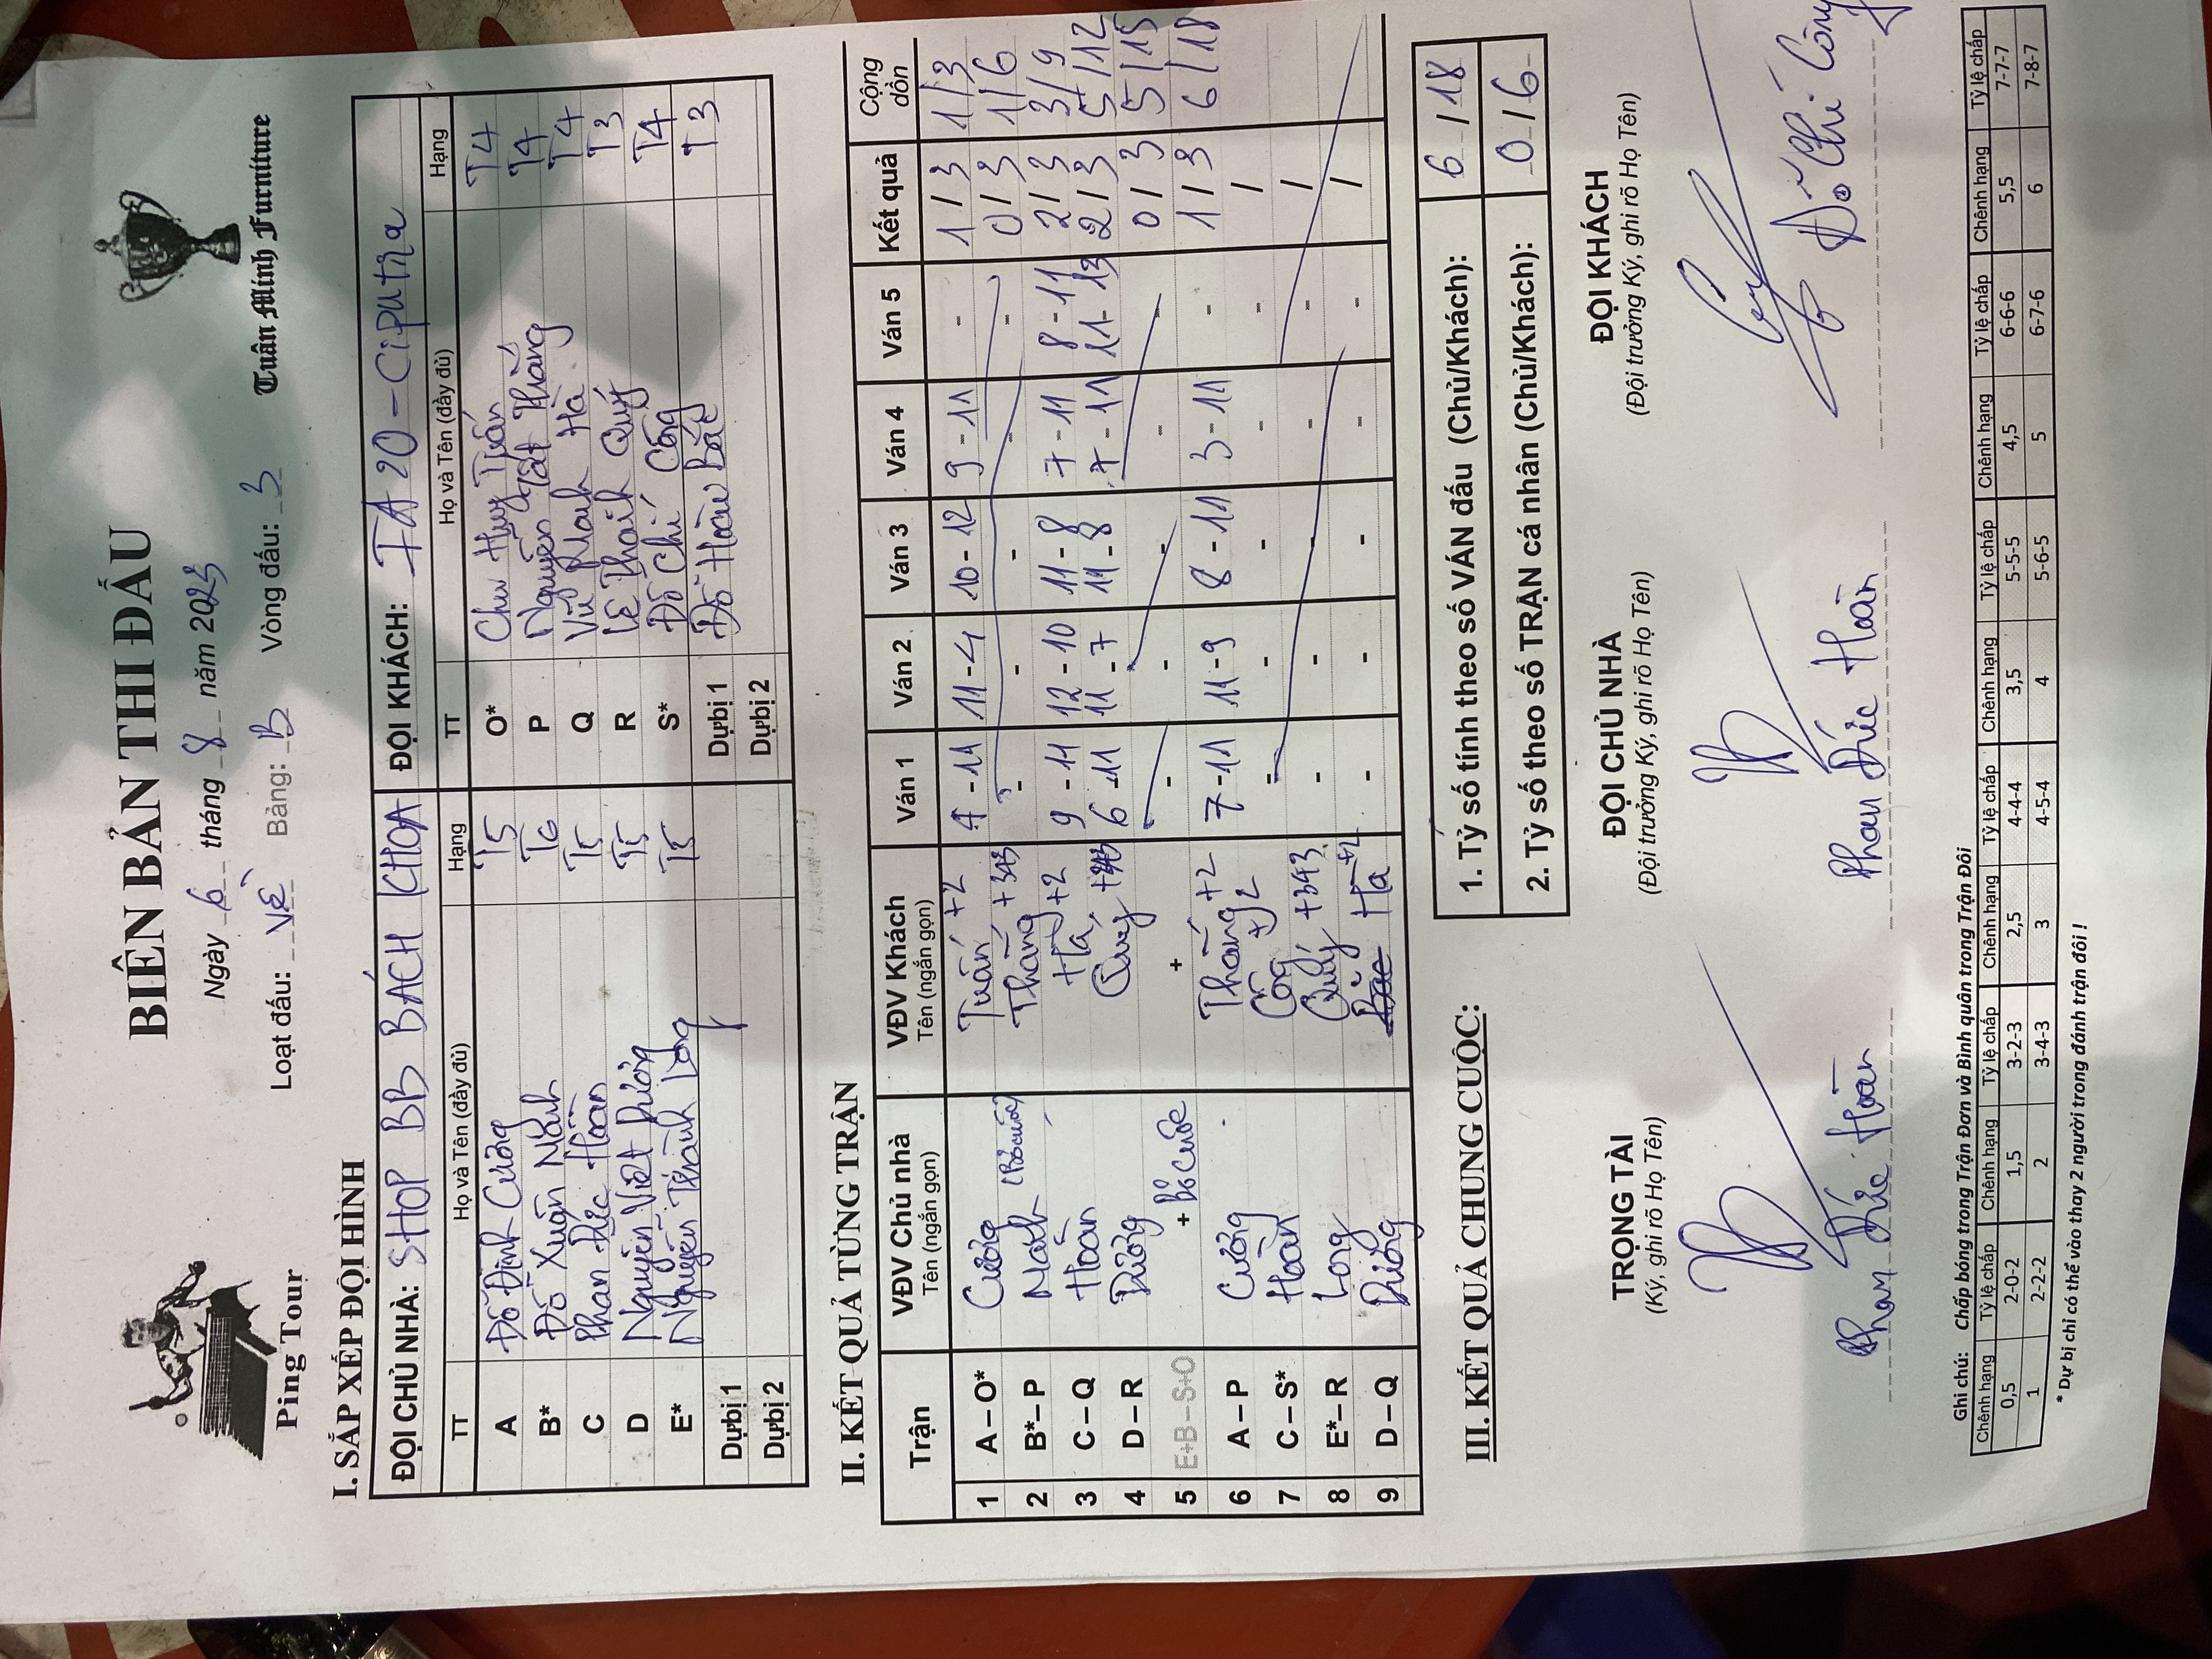 BIÊN BẢN THI ĐẤU
Ping Tour
Tuân Minh Furniture
Ngày 6 tháng 8 năm 2023
Loạt đấu: Về Bảng: B Vòng đấu: 3
I. SẮP XẾP ĐỘI HÌNH
ĐỘI CHỦ NHÀ: SHOP BB BÁCH KHOA ĐỘI KHÁCH: TA 20 - Ciputra
TT Họ và Tên (đầy đủ) Hạng TT Họ và Tên (đầy đủ) Hạng
A Đỗ Đình Cường T5 O* Chu Huy Tuấn T4
B* Đỗ Xuân Nành T6 P Nguyễn Tất Thắng T4
C Phan Đức Hoàn T5 Q Vũ Khanh Hà T4
D Nguyễn Việt Dương T5 R Lê Thành Quý T3
E* Nguyễn Thành Long T5 S* Đỗ Chí Công T4
Dự bị 1 Dự bị 1 Đỗ Hoàn Bắc T3
Dự bị 2 Dự bị 2
II. KẾT QUẢ TỪNG TRẬN
Trận VĐV Chủ nhà Tên (ngắn gọn) VĐV Khách Tên (ngắn gọn) Ván 1 Ván 2 Ván 3 Ván 4 Ván 5 Kết quả Cộng dồn
1 A – O* Cường Tuấn +2 4 - 11 11 - 4 10 - 12 9 - 11 - 1 / 3 1 / 3
2 B* – P (Bỏ cuộc) Thắng + 343 - - - - - 0 / 3 1 / 6
3 C – Q Hoàn Hà +2 9 - 11 12 - 10 11 - 8 7 - 11 8 - 11 2 / 3 3 / 9
4 D – R Dương Quý +343 6 - 11 11 - 7 11 - 8 7 - 11 11 - 13 2 / 3 5 / 12
5 E+B – S+O + Bỏ cuộc + - - - - - 0 / 3 5 / 15
6 A – P Cường Thắng +2 7 - 11 11 - 9 8 - 11 3 - 11 - 1 / 3 6 / 18
7 C – S* Hoàn Công +2 - - - - - /
8 E* – R Long Quý +343 - - - - - /
9 D – Q Dương Hà +2 - - - - - /
III. KẾT QUẢ CHUNG CUỘC:
1. Tỷ số tính theo số VÁN đấu (Chủ/Khách): 6 / 18
2. Tỷ số theo số TRẬN cá nhân (Chủ/Khách): 0 / 6
TRỌNG TÀI ĐỘI CHỦ NHÀ ĐỘI KHÁCH
(Ký, ghi rõ Họ Tên) (Đội trưởng Ký, ghi rõ Họ Tên) (Đội trưởng Ký, ghi rõ Họ Tên)
Phan Đức Hoàn Phan Đức Hoàn Đỗ Chí Công
Ghi chú: Chấp bóng trong Trận Đơn và Bình quân trong Trận Đôi
Chênh hạng Tỷ lệ chấp Chênh hạng Tỷ lệ chấp Chênh hạng Tỷ lệ chấp Chênh hạng Tỷ lệ chấp Chênh hạng Tỷ lệ chấp Chênh hạng Tỷ lệ chấp
0,5 2-0-2 1,5 3-2-3 2,5 4-4-4 3,5 5-5-5 4,5 6-6-6 5,5 7-7-7
1 2-2-2 2 3-4-3 3 4-5-4 4 5-6-5 5 6-7-6 6 7-8-7
* Dự bị chỉ có thể vào thay 2 người trong đánh trận đôi !